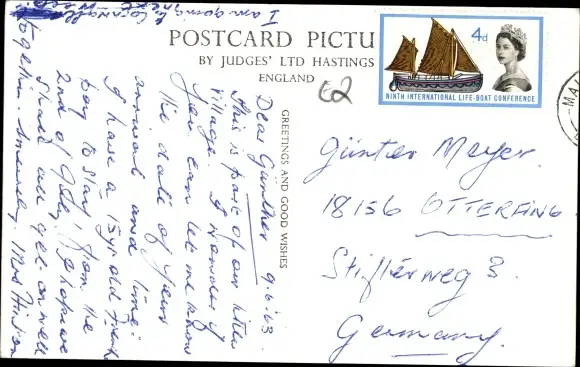 I am going
to Cornwall
next week
POSTCARD PICTU
BY JUDGES' LTD HASTINGS
ENGLAND
4d
NINTH INTERNATIONAL LIFE-BOAT CONFERENCE
MA
62
GREETINGS AND GOOD WISHES
Dear Günther 9.6.63.
This is part of our little
village. I wonder if
you can let me know
the date of your
arrival and time.
I have a 15 yr old French
boy to stay from the
2nd of July, I hope we
shall all get on well
together. Sincerely Mrs
Günter Meyer.
18156 OTTERFING
Stiflerweg 3.
Germany.